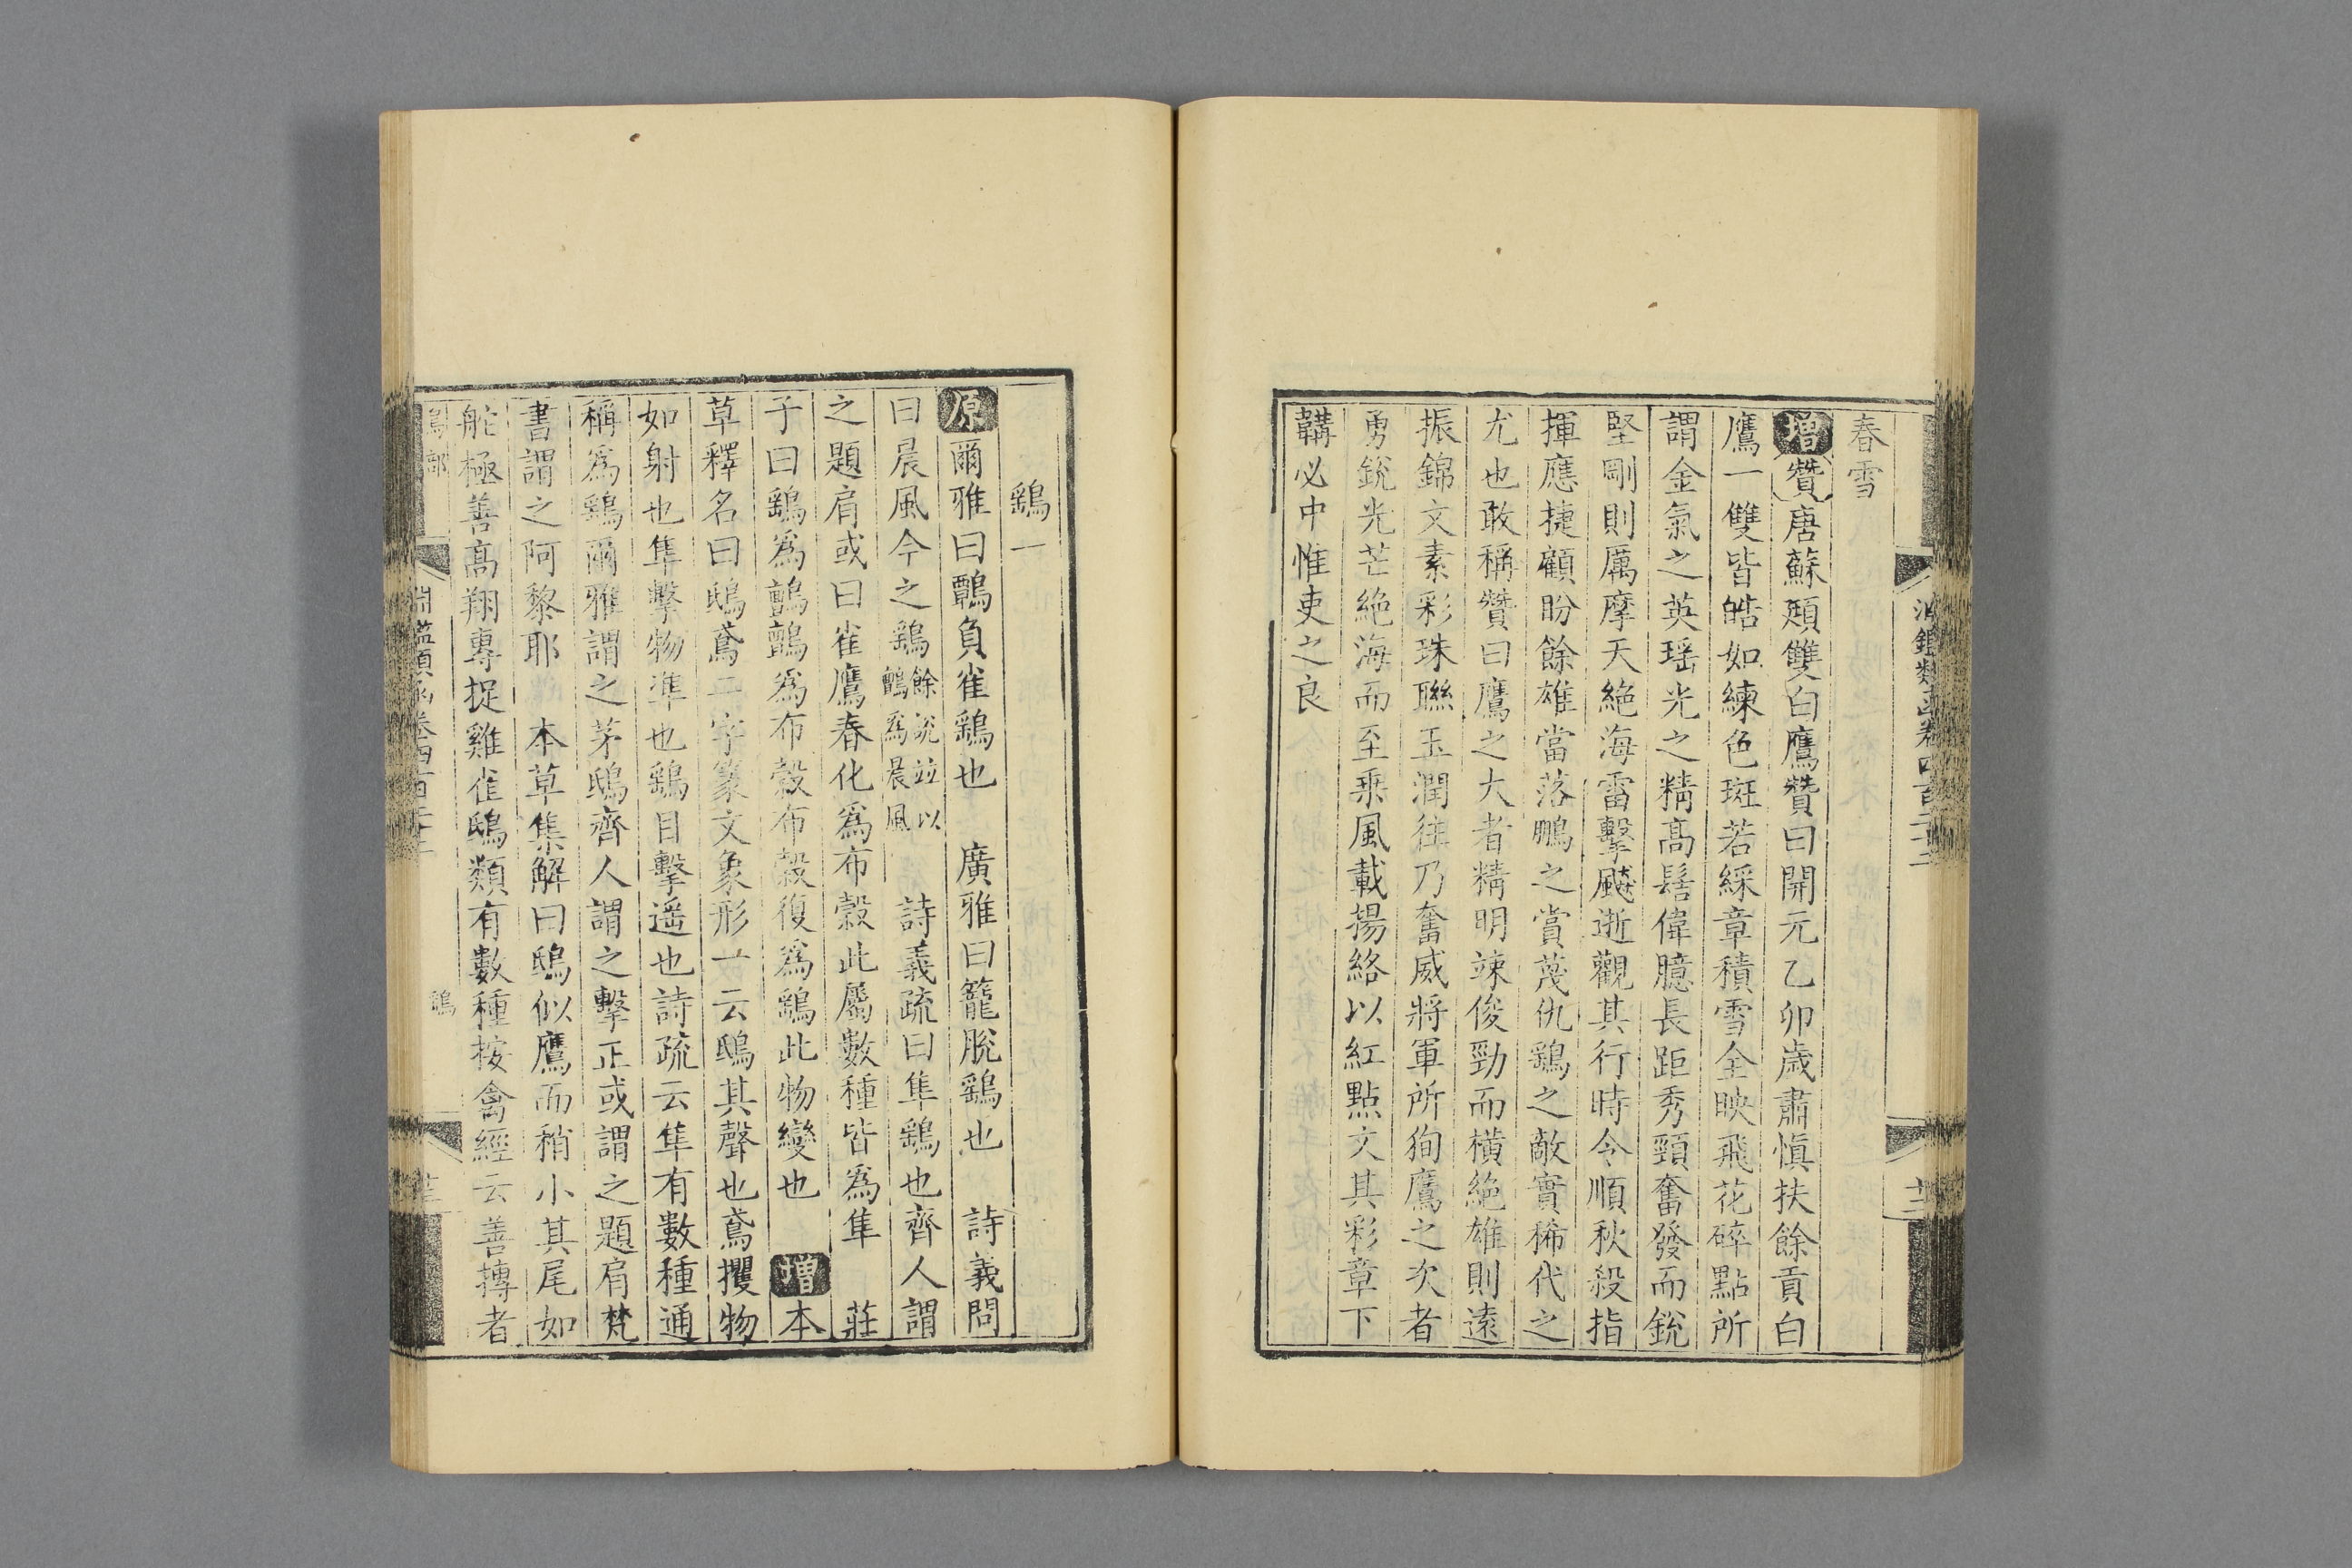 春雪
增贊唐蘇頲雙白鷹贊曰開元乙卯歲肅慎扶餘貢白
鷹一雙皆皓如練色斑若綵章積雪全映飛花碎點所
謂金氣之英瑶光之精高髻偉臆長距秀頸奮發而銳
堅剛則厲摩天絶海雷擊飈逝觀其行時令順秋殺指
揮應捷顧盼餘雄當落鵬之賞茂仇鷂之敵實稀代之
尤也敢稱贊曰鷹之大者精明竦俊勁而橫絶雄則遠
振錦文素彩珠聯玉潤往乃奮威將軍所狥鷹之次者
勇銳光芒絶海而至乗風載揚絡以紅點文其彩章下
韝必中惟吏之良
鷂一
原爾雅曰鸇負雀鷂也 廣雅曰籠脫鷂也 詩義問
曰晨風今之鷂餘說並以鸇爲晨風 詩義疏曰隼鷂也齊人謂
之題肩或曰雀鷹春化爲布穀此屬數種皆爲隼 莊
子曰鷂爲鸇鸇爲布穀布穀復爲鷂此物變也 增本
草釋名曰鴟鳶二字篆文象形一云鴟其聲也鳶攫物
如射也隼擊物準也鷂目擊遥也詩疏云隼有數種通
稱爲鷂爾雅謂之茅鴟齊人謂之擊正或謂之題肩梵
書謂之阿黎耶 本草集解曰鴟似鷹而稍小其尾如
舵極善高翔專捉雞雀鴟類有數種按禽經云善摶者
鳥部 淵鑑類函卷四百二十二 鷂